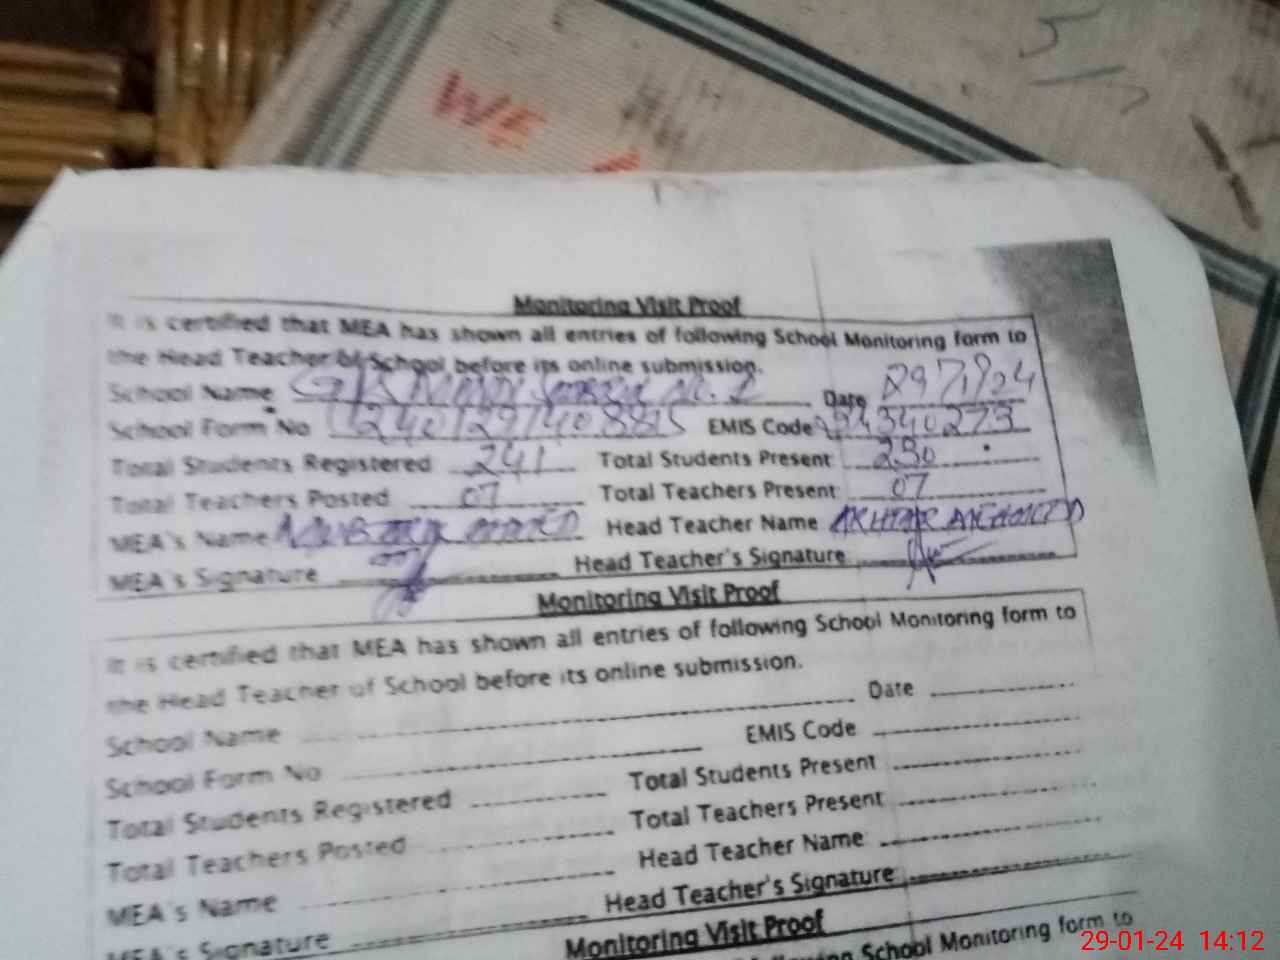 WE
Monitoring Visit Proof
It is certified that MEA has shown all entries of following School Monitoring form to
the Head Teacher of School before its online submission.
School Name No. 2 Date 29/1/24
School Form No EMIS Code
Total Students Registered 241 Total Students Present 230
Total Teachers Posted 07 Total Teachers Present 07
MEA's Name Head Teacher Name AKHTAR
MEA's Signature Head Teacher's Signature
Monitoring Visit Proof
It is certified that MEA has shown all entries of following School Monitoring form to
the Head Teacher of School before its online submission.
School Name Date
School Form No EMIS Code
Total Students Registered Total Students Present
Total Teachers Posted Total Teachers Present
MEA's Name Head Teacher Name
MEA's Signature Head Teacher's Signature
Monitoring Visit Proof
School Monitoring form to
29-01-24 14:12